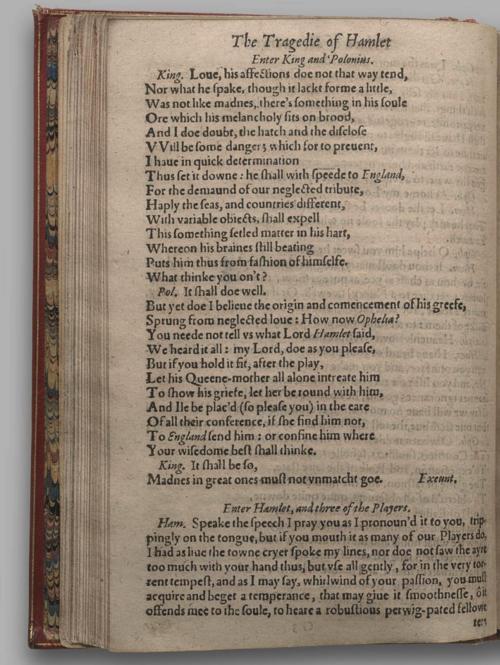 The Tragedie of Hamlet
Enter King and Polonius.
King. Loue, his affections doe not that way tend,
Nor what he spake, though it lackt forme a little,
Was not like madnes, there's something in his soule
Ore which his melancholy sits on brood,
And I doe doubt, the hatch and the disclose
VVill be some danger; which for to preuent,
I haue in quick determination
Thus set it downe : he shall with speede to England,
For the demaund of our neglected tribute,
Haply the seas, and countries different,
With variable obiects, shall expell
This something setled matter in his hart,
Whereon his braines still beating
Puts him thus from fashion of himselfe.
What thinke you on't?
Pol. It shall doe well.
But yet doe I belieue the origin and comencement of his greefe,
Sprung from neglected loue : How now Ophelia?
You neede not tell vs what Lord Hamlet said,
We heard it all : my Lord, doe as you please,
But if you hold it fit, after the play,
Let his Queene-mother all alone intreate him
To show his griefe, let her be round with him,
And Ile be plac'd (so please you) in the eare
Of all their conference, if she find him not,
To England send him : or confine him where
Your wisedome best shall thinke.
King. It shall be so,
Madnes in great ones must not vnmatcht goe. Exeunt.
Enter Hamlet, and three of the Players.
Ham. Speake the speech I pray you as I pronoun'd it to you, trip-
pingly on the tongue, but if you mouth it as many of our Players do,
I had as liue the towne cryer spoke my lines, nor doe not saw the ayre
too much with your hand thus, but vse all gently, for in the very tor-
rent tempest, and as I may say, whirlwind of your passion, you must
acquire and beget a temperance, that may giue it smoothnesse, ô it
offends mee to the soule, to heare a robustious perwig-pated fellowe